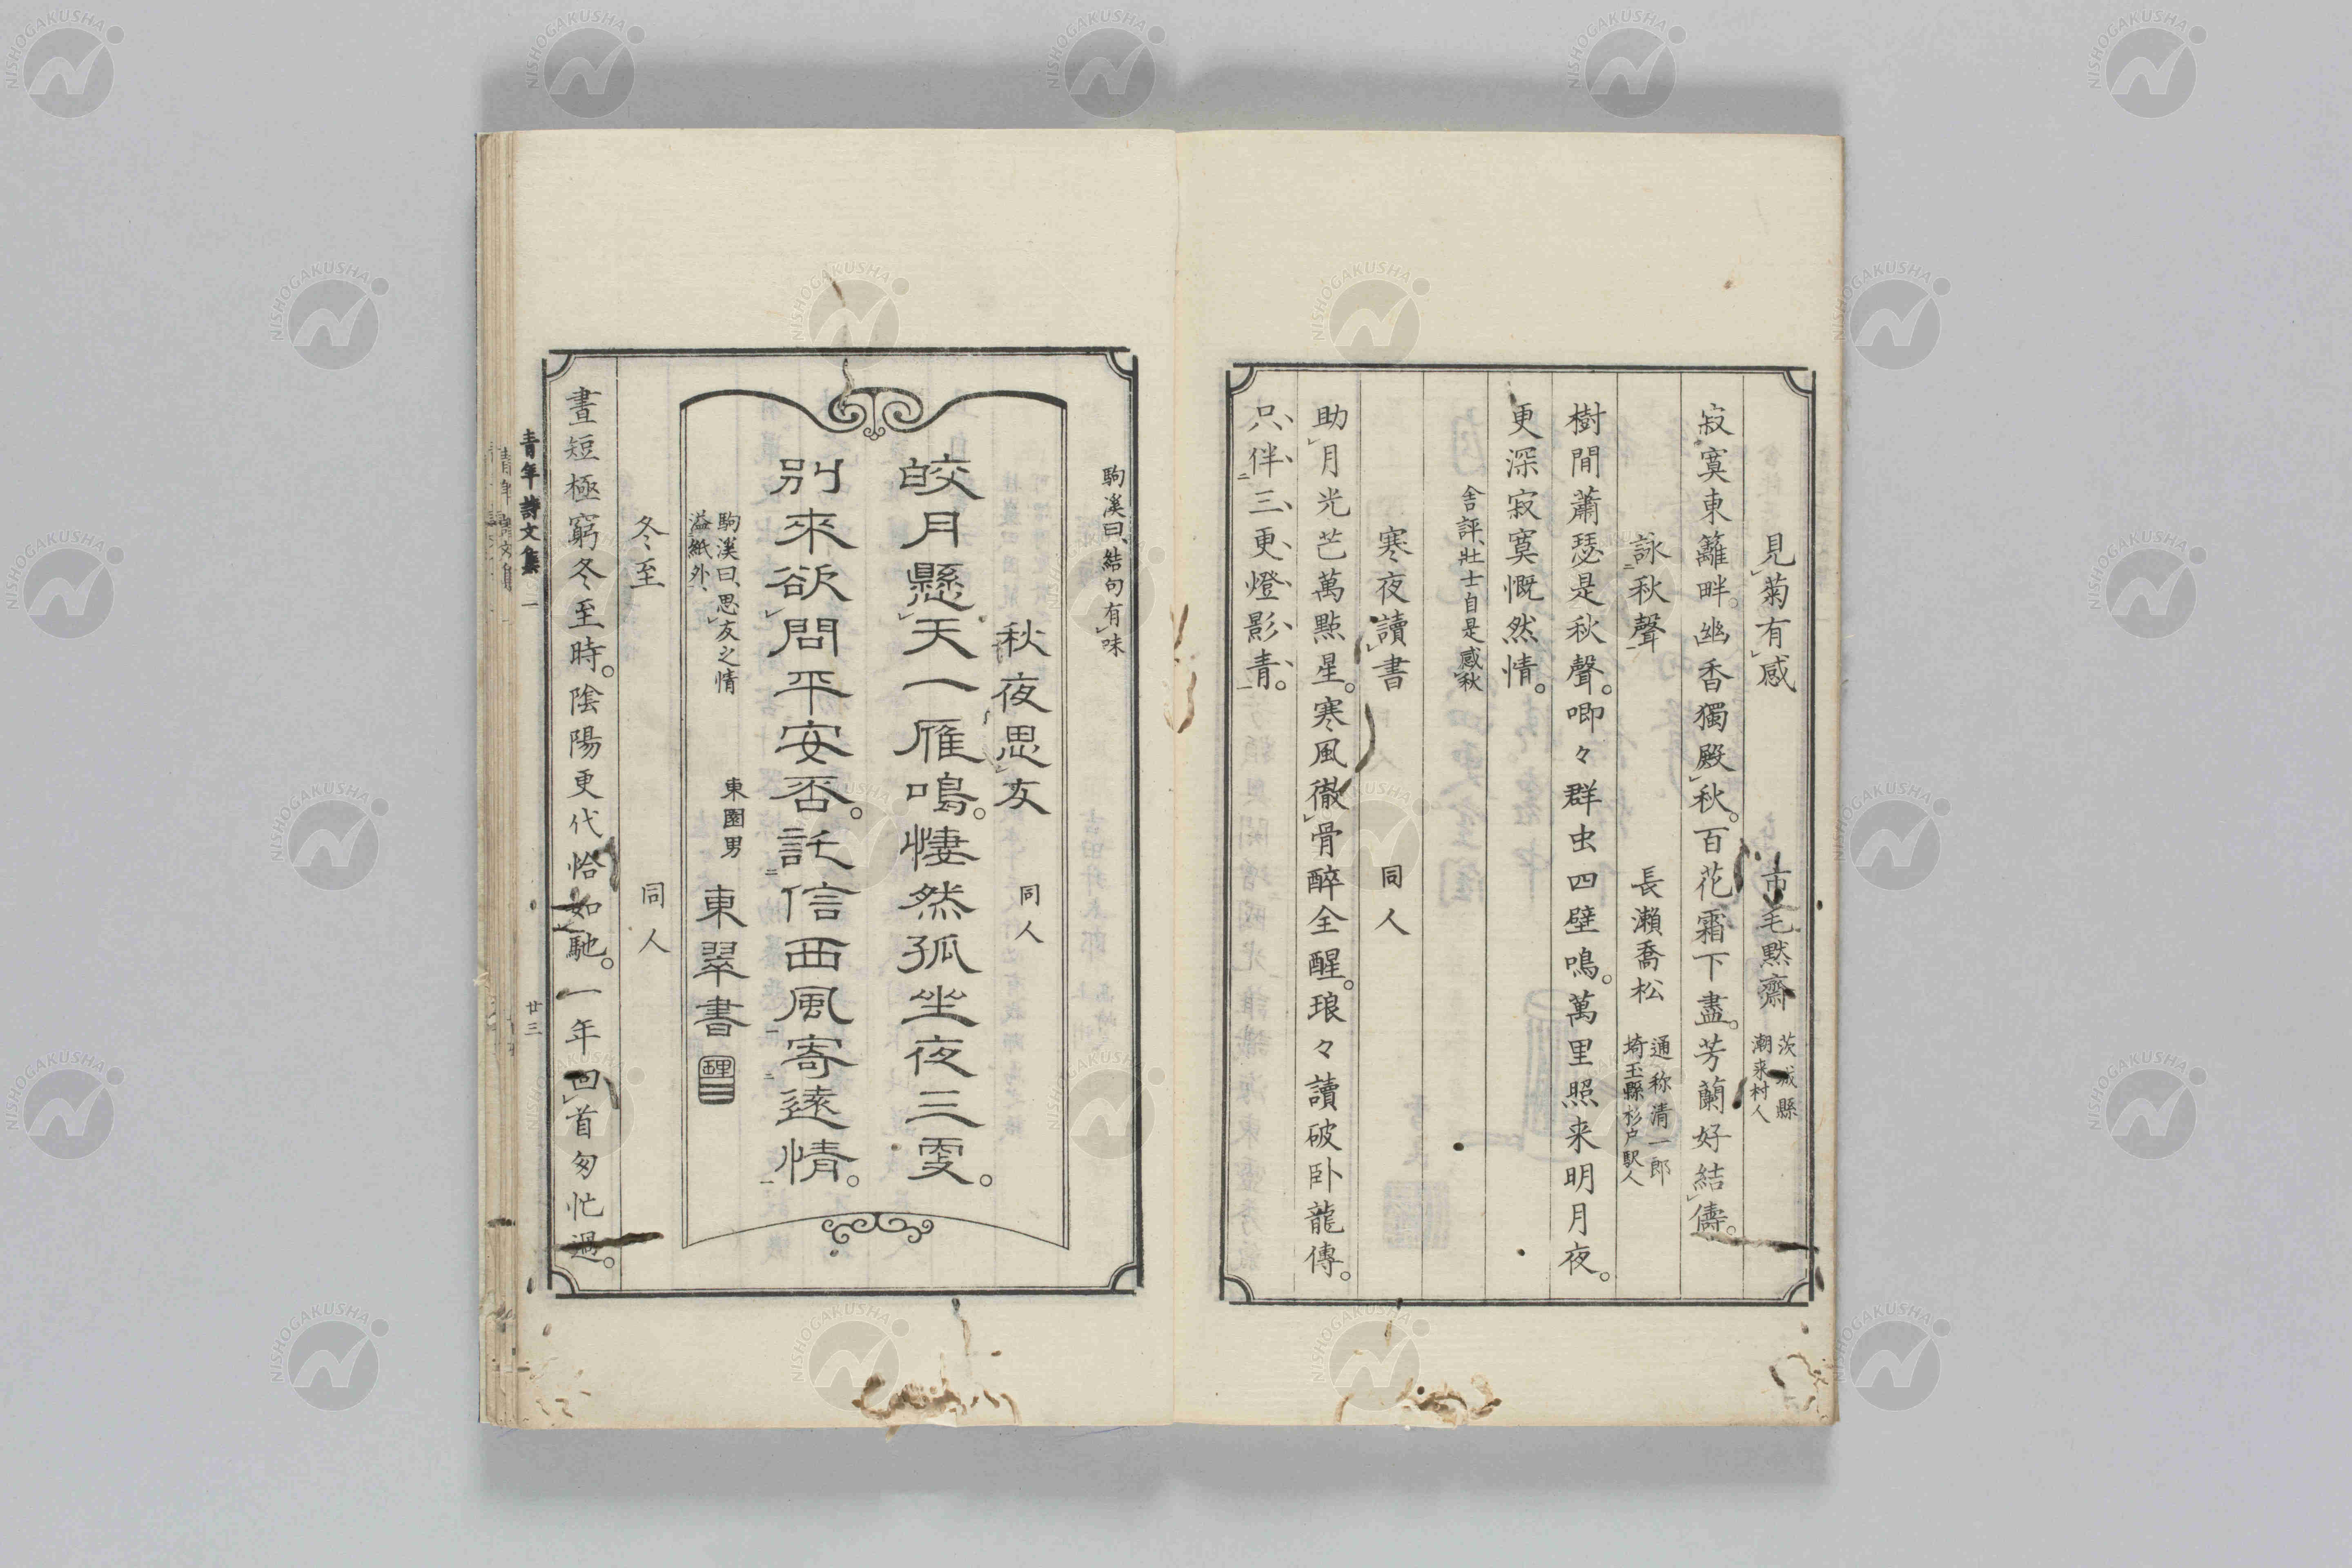 見菊有感 市毛黙齋 茨城縣潮来村人
寂寞東籬畔。幽香獨殿秋。百花霜下盡。芳蘭好結儔。
詠秋聲 長瀬喬松 通称清一郎埼玉縣杉戸駅人
樹間蕭瑟是秋聲。喞々群虫四壁鳴。萬里照来明月夜。
更深寂寞慨然情。
舎評、壮士自是感秋
寒夜讀書 同人
助月光芒萬點星。寒風徹骨醉全醒。琅々讀破卧龍傳。
只伴三更燈影青。
駒溪曰、結句有味
秋夜思友 同人
皎月懸天一雁鳴。悽然孤坐夜三更。
別來欲問平安否。託信西風寄遠情。
駒溪曰、思友之情
溢紙外、
東園男 東翠書
冬至 同人
晝短極窮冬至時。陰陽更代恰如馳。一年回首匆忙過。
青年詩文集 一
廿三
NISHOGAKUSHA